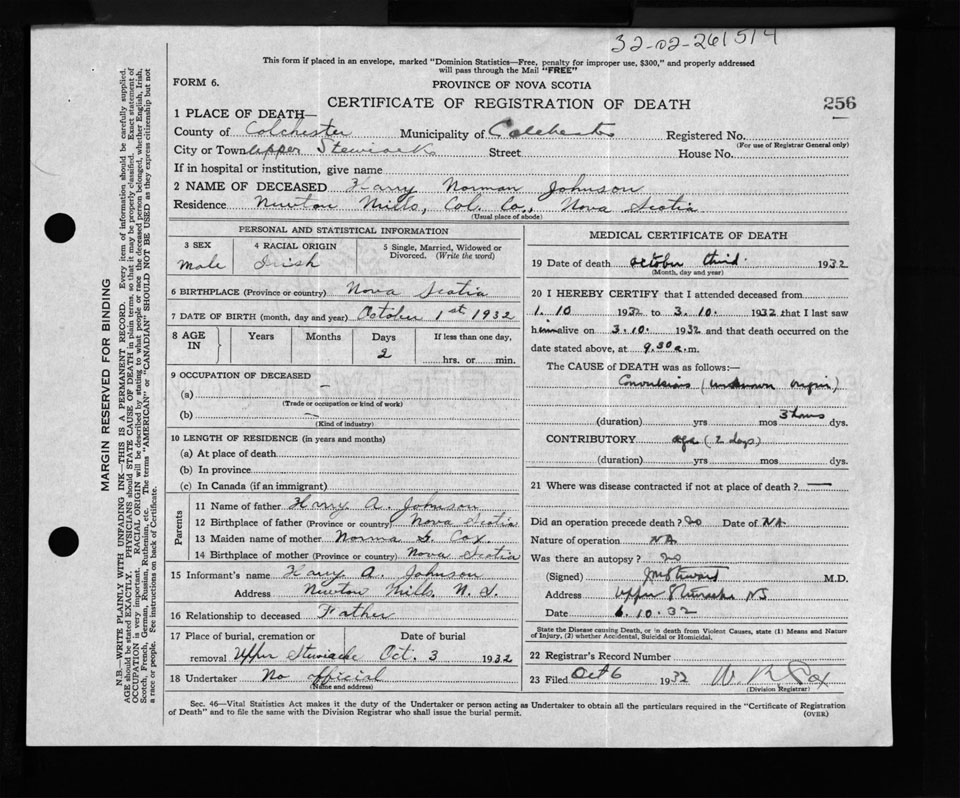 32-02-261514
This form if placed in an envelope, marked "Dominion Statistics—Free, penalty for improper use, $300," and properly addressed
will pass through the Mail "FREE"
FORM 6.
PROVINCE OF NOVA SCOTIA
CERTIFICATE OF REGISTRATION OF DEATH
256
1 PLACE OF DEATH—
County of Colchester Municipality of Colchester Registered No.
(For use of Registrar General only)
City or Town Upper Stewiacke Street House No.
If in hospital or institution, give name
2 NAME OF DECEASED Harry Norman Johnson
Residence Newton Mills, Col. Co., Nova Scotia
(Usual place of abode)
PERSONAL AND STATISTICAL INFORMATION
3 SEX
Male
4 RACIAL ORIGIN
Irish
5 Single, Married, Widowed or
Divorced. (Write the word)
6 BIRTHPLACE (Province or country) Nova Scotia
7 DATE OF BIRTH (month, day and year) October 1st 1932
8 AGE IN Years Months Days If less than one day,
2 hrs. or min.
9 OCCUPATION OF DECEASED
(a) —
(Trade or occupation or kind of work)
(b) —
(Kind of industry)
10 LENGTH OF RESIDENCE (in years and months)
(a) At place of death
(b) In province
(c) In Canada (if an immigrant)
Parents
11 Name of father Harry A. Johnson
12 Birthplace of father (Province or country) Nova Scotia
13 Maiden name of mother Norma G. Cox
14 Birthplace of mother (Province or country) Nova Scotia
15 Informant's name Harry A. Johnson
Address Newton Mills, N. S.
16 Relationship to deceased Father
17 Place of burial, cremation or Date of burial
removal Upper Stewiacke Oct. 3 1932
18 Undertaker No official
(Name and address)
MEDICAL CERTIFICATE OF DEATH
19 Date of death October third 1932
(Month, day and year)
20 I HEREBY CERTIFY that I attended deceased from
1. 10 1932 to 3. 10. 1932 that I last saw
him alive on 3.10. 1932 and that death occurred on the
date stated above, at 9.30 a.m.
The CAUSE OF DEATH was as follows:—
Convulsions (unknown origin)
(duration) yrs mos 3 hours dys.
CONTRIBUTORY age (2 days)
(duration) yrs mos dys.
21 Where was disease contracted if not at place of death? —
Did an operation precede death? no Date of NA
Nature of operation NA
Was there an autopsy? no
(Signed) M.D.
Address Upper Stewiacke NS
Date 6.10.32
State the Disease causing Death, or in death from Violent Causes, state (1) Means and Nature
of Injury, (2) whether Accidental, Suicidal or Homicidal.
22 Registrar's Record Number
23 Filed Oct 6 1932 W. R. Cox
(Division Registrar)
Sec. 46—Vital Statistics Act makes it the duty of the Undertaker or person acting as Undertaker to obtain all the particulars required in the "Certificate of Registration
of Death" and to file the same with the Division Registrar who shall issue the burial permit.
(OVER)
MARGIN RESERVED FOR BINDING
N.B.—WRITE PLAINLY WITH UNFADING INK—THIS IS A PERMANENT RECORD. Every item of information should be carefully supplied.
AGE should be stated EXACTLY. PHYSICIANS should STATE CAUSE OF DEATH in plain terms, so that it may be properly classified. Exact statement of
OCCUPATION is very important. RACIAL ORIGIN will be described by stating to what people or race the deceased person belonged, whether English, Irish,
Scotch, French, German, Russian, Ruthenian, etc. The terms "AMERICAN" or "CANADIAN" SHOULD NOT BE USED as they express citizenship but not
a race or people. See instructions on back of Certificate.